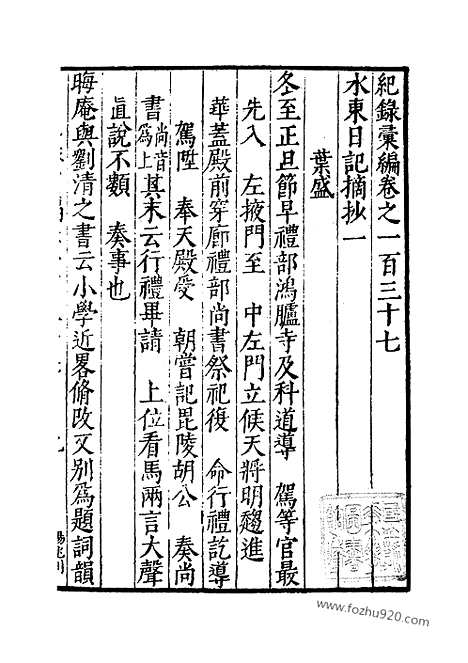 紀錄彙編卷之一百三十七
水東日記摘抄一
葉盛
冬至正旦節早禮部鴻臚寺及科道導 駕等官最
先入 左掖門至 中左門立候天將明趨進
華蓋殿前穿廊禮部尚書祭祀復 命行禮訖導
駕陞 奉天殿受 朝嘗記毘陵胡公 奏尚
書尚音為上其末云行禮畢請 上位看馬兩言大聲
直說不類 奏事也
晦庵與劉清之書云小學近畧脩改又别爲題詞韻
www.fozhu920.com